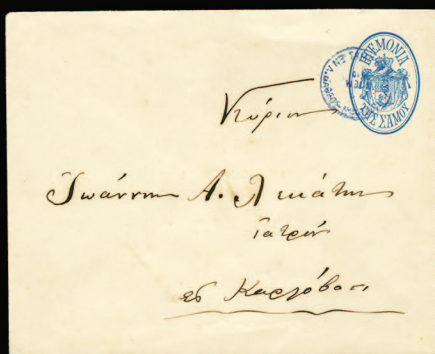 ΗΓΕΜΟΝΙΑ
ΤΗΣ ΣΑΜΟΥ
Κύριον
Ἰωάννην Α.
Ἰατρόν
Καρλόβασι